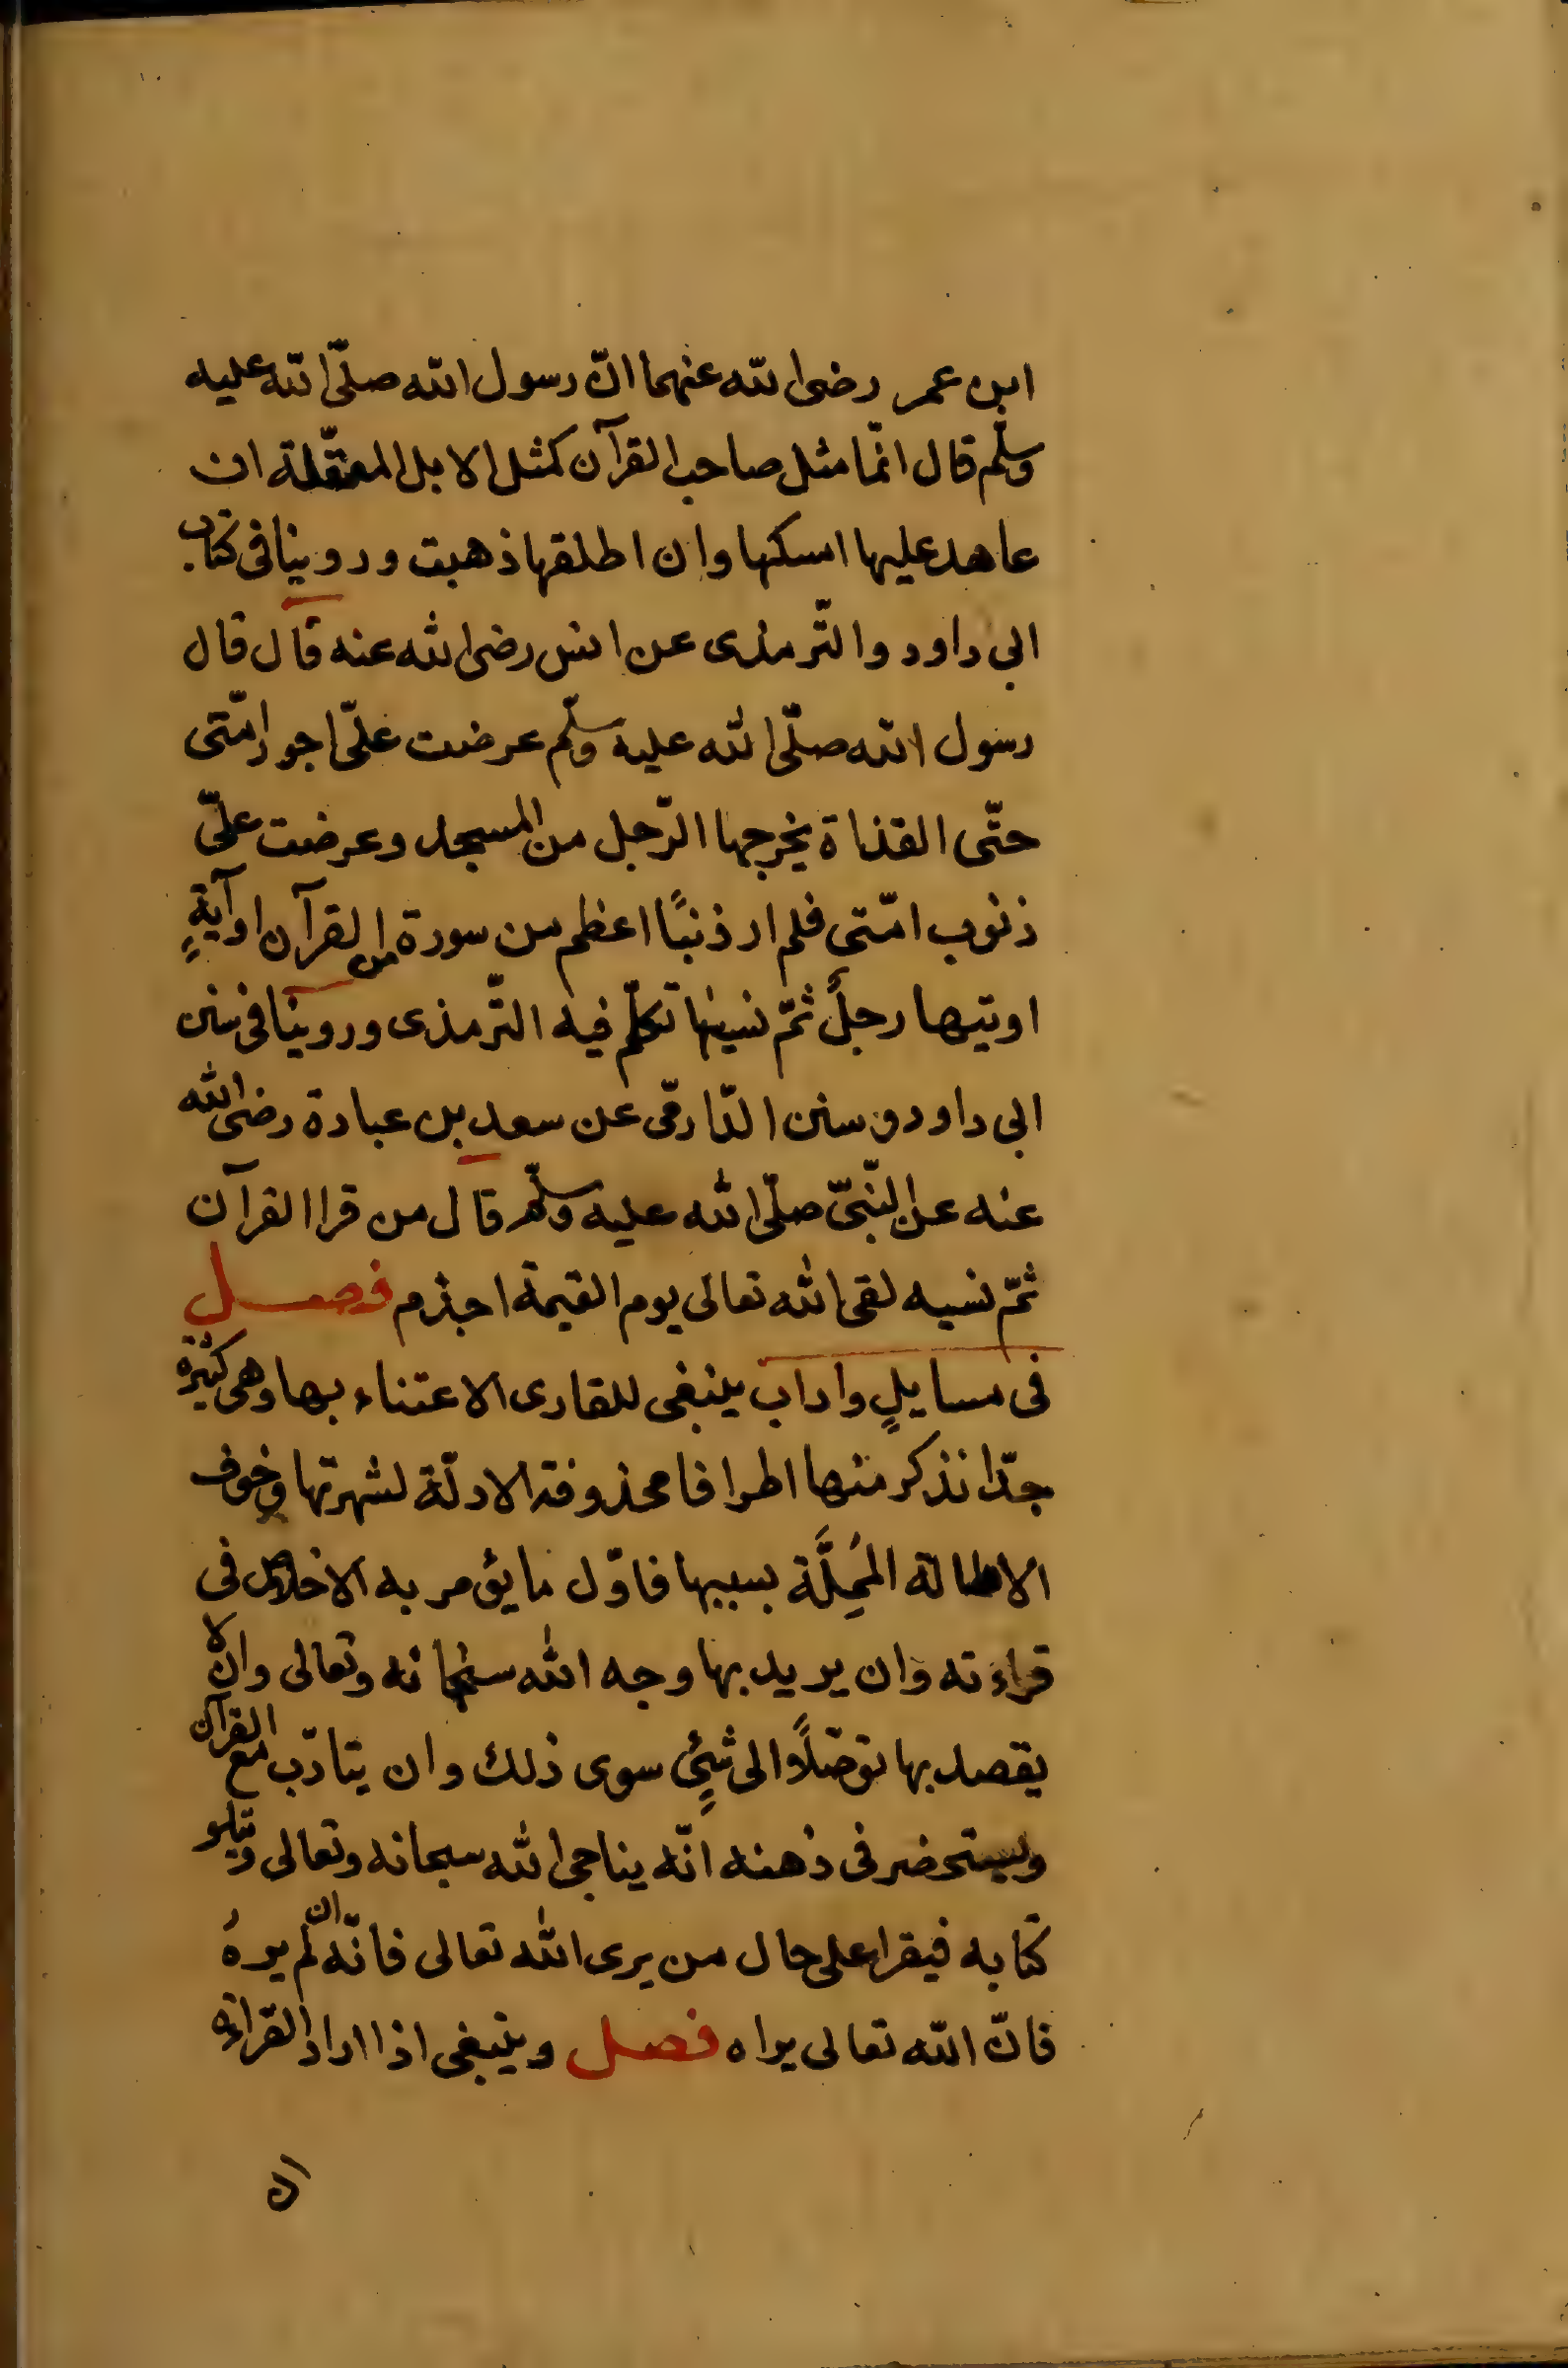 ابن عمر رضى الله عنهما انّ رسول الله صلّى الله عليه
وسلّم قال انّما مثل صاحب القرآن كمثل الابل المعقّلة ان
عاهد عليها امسكها وان اطلقها ذهبت وروينا فى كتاب
ابى داود والتّرمذى عن انس رضى الله عنه قال قال
رسول الله صلّى الله عليه وسلّم عرضت علىّ اجور امّتى
حتّى القذاة يخرجها الرّجل من المسجد وعرضت علىّ
ذنوب امّتى فلم ار ذنبًا اعظم من سورة من القرآن او آيةٍ
اوتيها رجلٌ ثمّ نسيها تكلّم فيه التّرمذى وروينا فى سنن
ابى داود و سنن الدّارمّى عن سعد بن عبادة رضى الله
عنه عن النّبىّ صلّى الله عليه وسلّم قال من قرا القرآن
ثمّ نسيه لقى الله تعالى يوم القيمة اجذم فصل
فى مسايلٍ واداب ينبغى للقارى الاعتناء بها وهى كثيرة
جدّا نذكر منها اطرافا محذوفة الادلّة لشهرتها وخوف
الاطالة المُمِلَّة بسببها فاوّل ما يؤمر به الاخلاص فى
قراءته وان يريد بها وجه الله سبحانه وتعالى وان لا
يقصد بها توصّلًا الى شئٍ سوى ذلك وان يتادّب مع القرآن
ويستحضر فى ذهنه انّه يناجى الله سبحانه وتعالى ويتلو
كتابه فيقرا على حال من يرى الله تعالى فانّه ان لم يرهُ
فانّ الله تعالى يراه فصل وينبغى اذا اراد القراءة
ان